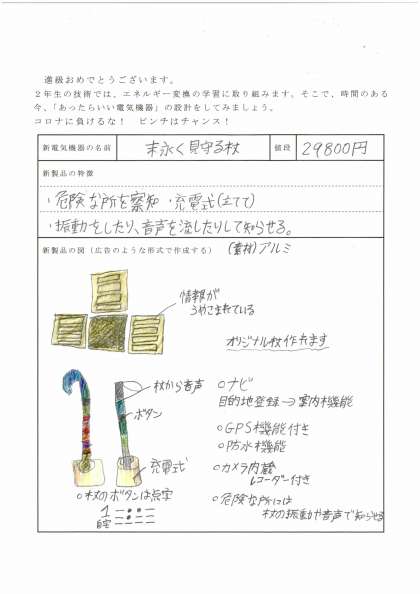 進級おめでとうございます。
2年生の技術では、エネルギー変換の学習に取り組みます。そこで、時間のある
今、「あったらいい電気機器」の設計をしてみましょう。
コロナに負けるな！ ピンチはチャンス！
新電気機器の名前 末永く見守る杖 値段 29800円
新製品の特徴
・危険な所を察知 ・充電式(立てて)
・振動をしたり、音声を流したりして知らせる。
新製品の図（広告のような形式で作成する） (素材)アルミ
情報が
うめこまれている
オリジナル杖作れます
杖から音声
ボタン
充電式
○杖のボタンは点字
1
自宅
○ナビ
目的地登録→案内機能
○GPS機能付き
○防水機能
○カメラ内蔵
レコーダー付き
○危険な所には
杖の振動や音声で知らせる